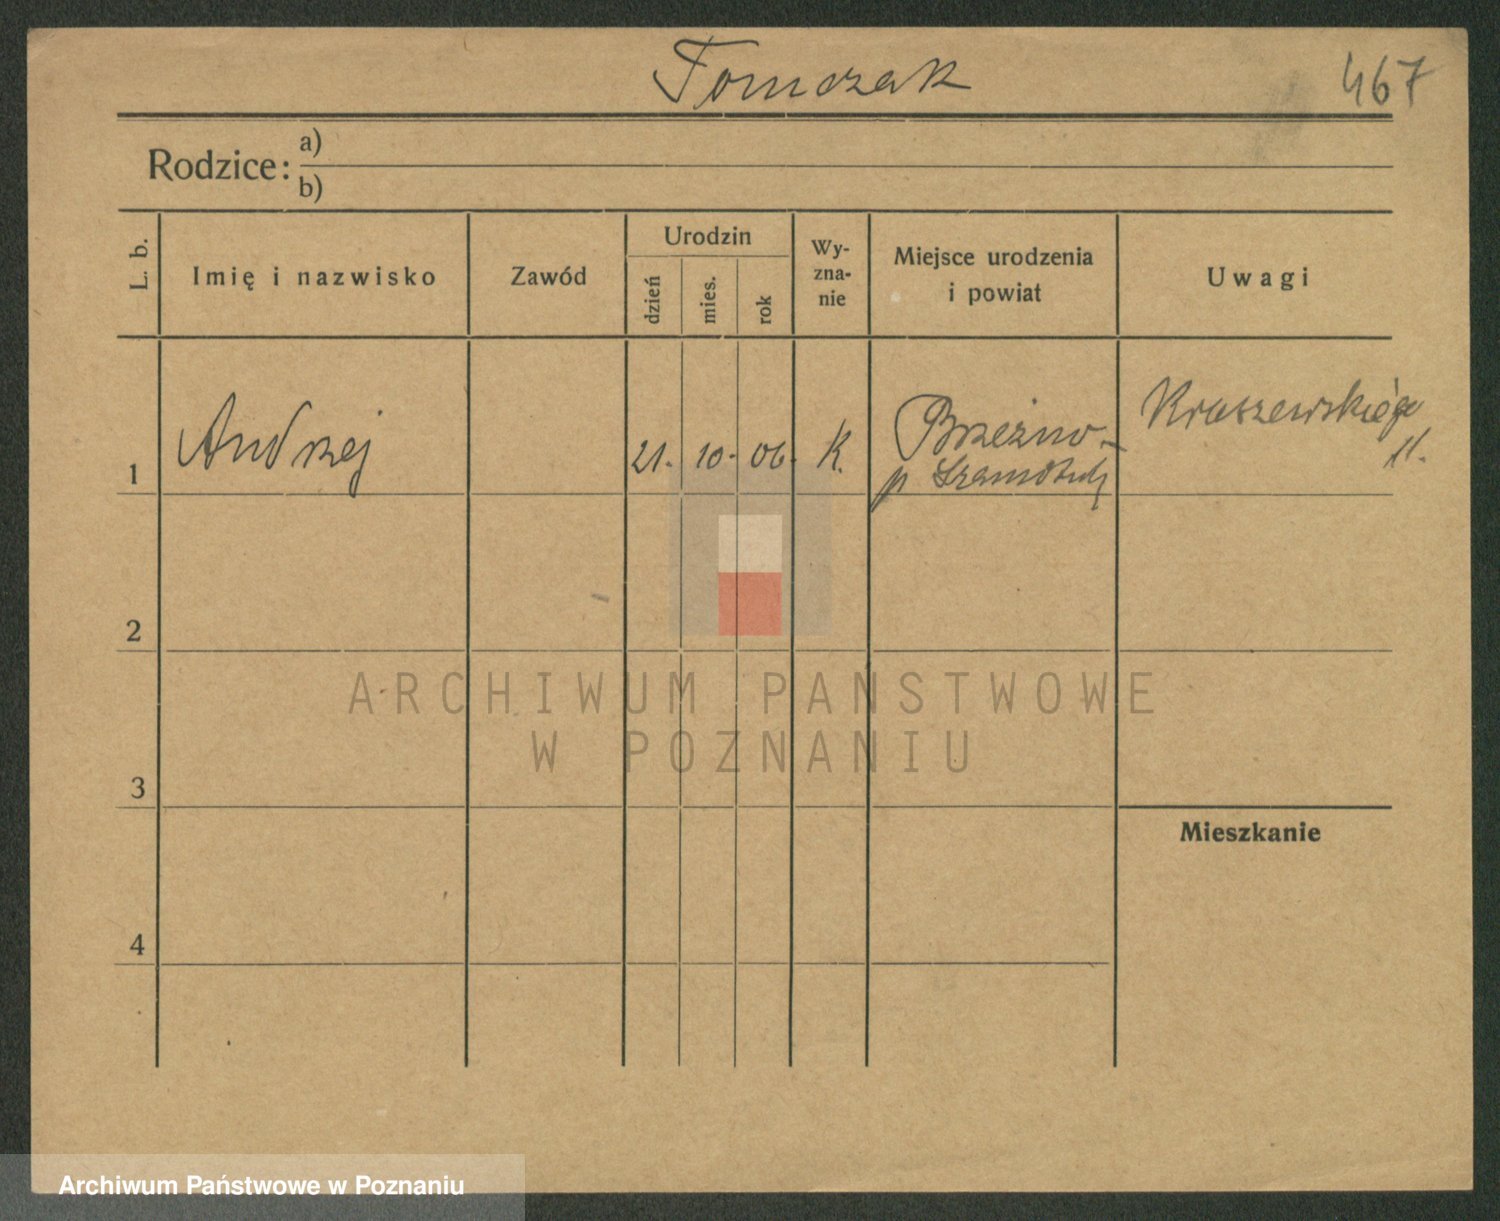 Tomczak
467
Rodzice:
a)
b)
L. b.
Imię i nazwisko
Zawód
Urodzin
dzień
mies.
rok
Wy-
zna-
nie
Miejsce urodzenia
i powiat
Uwagi
1
Andrzej
21.
10.
06.
K.
Brzeźno-
p Szamotuły
Kraszewskiego
11.
2
3
4
Mieszkanie
ARCHIWUM PAŃSTWOWE
W POZNANIU
Archiwum Państwowe w Poznaniu